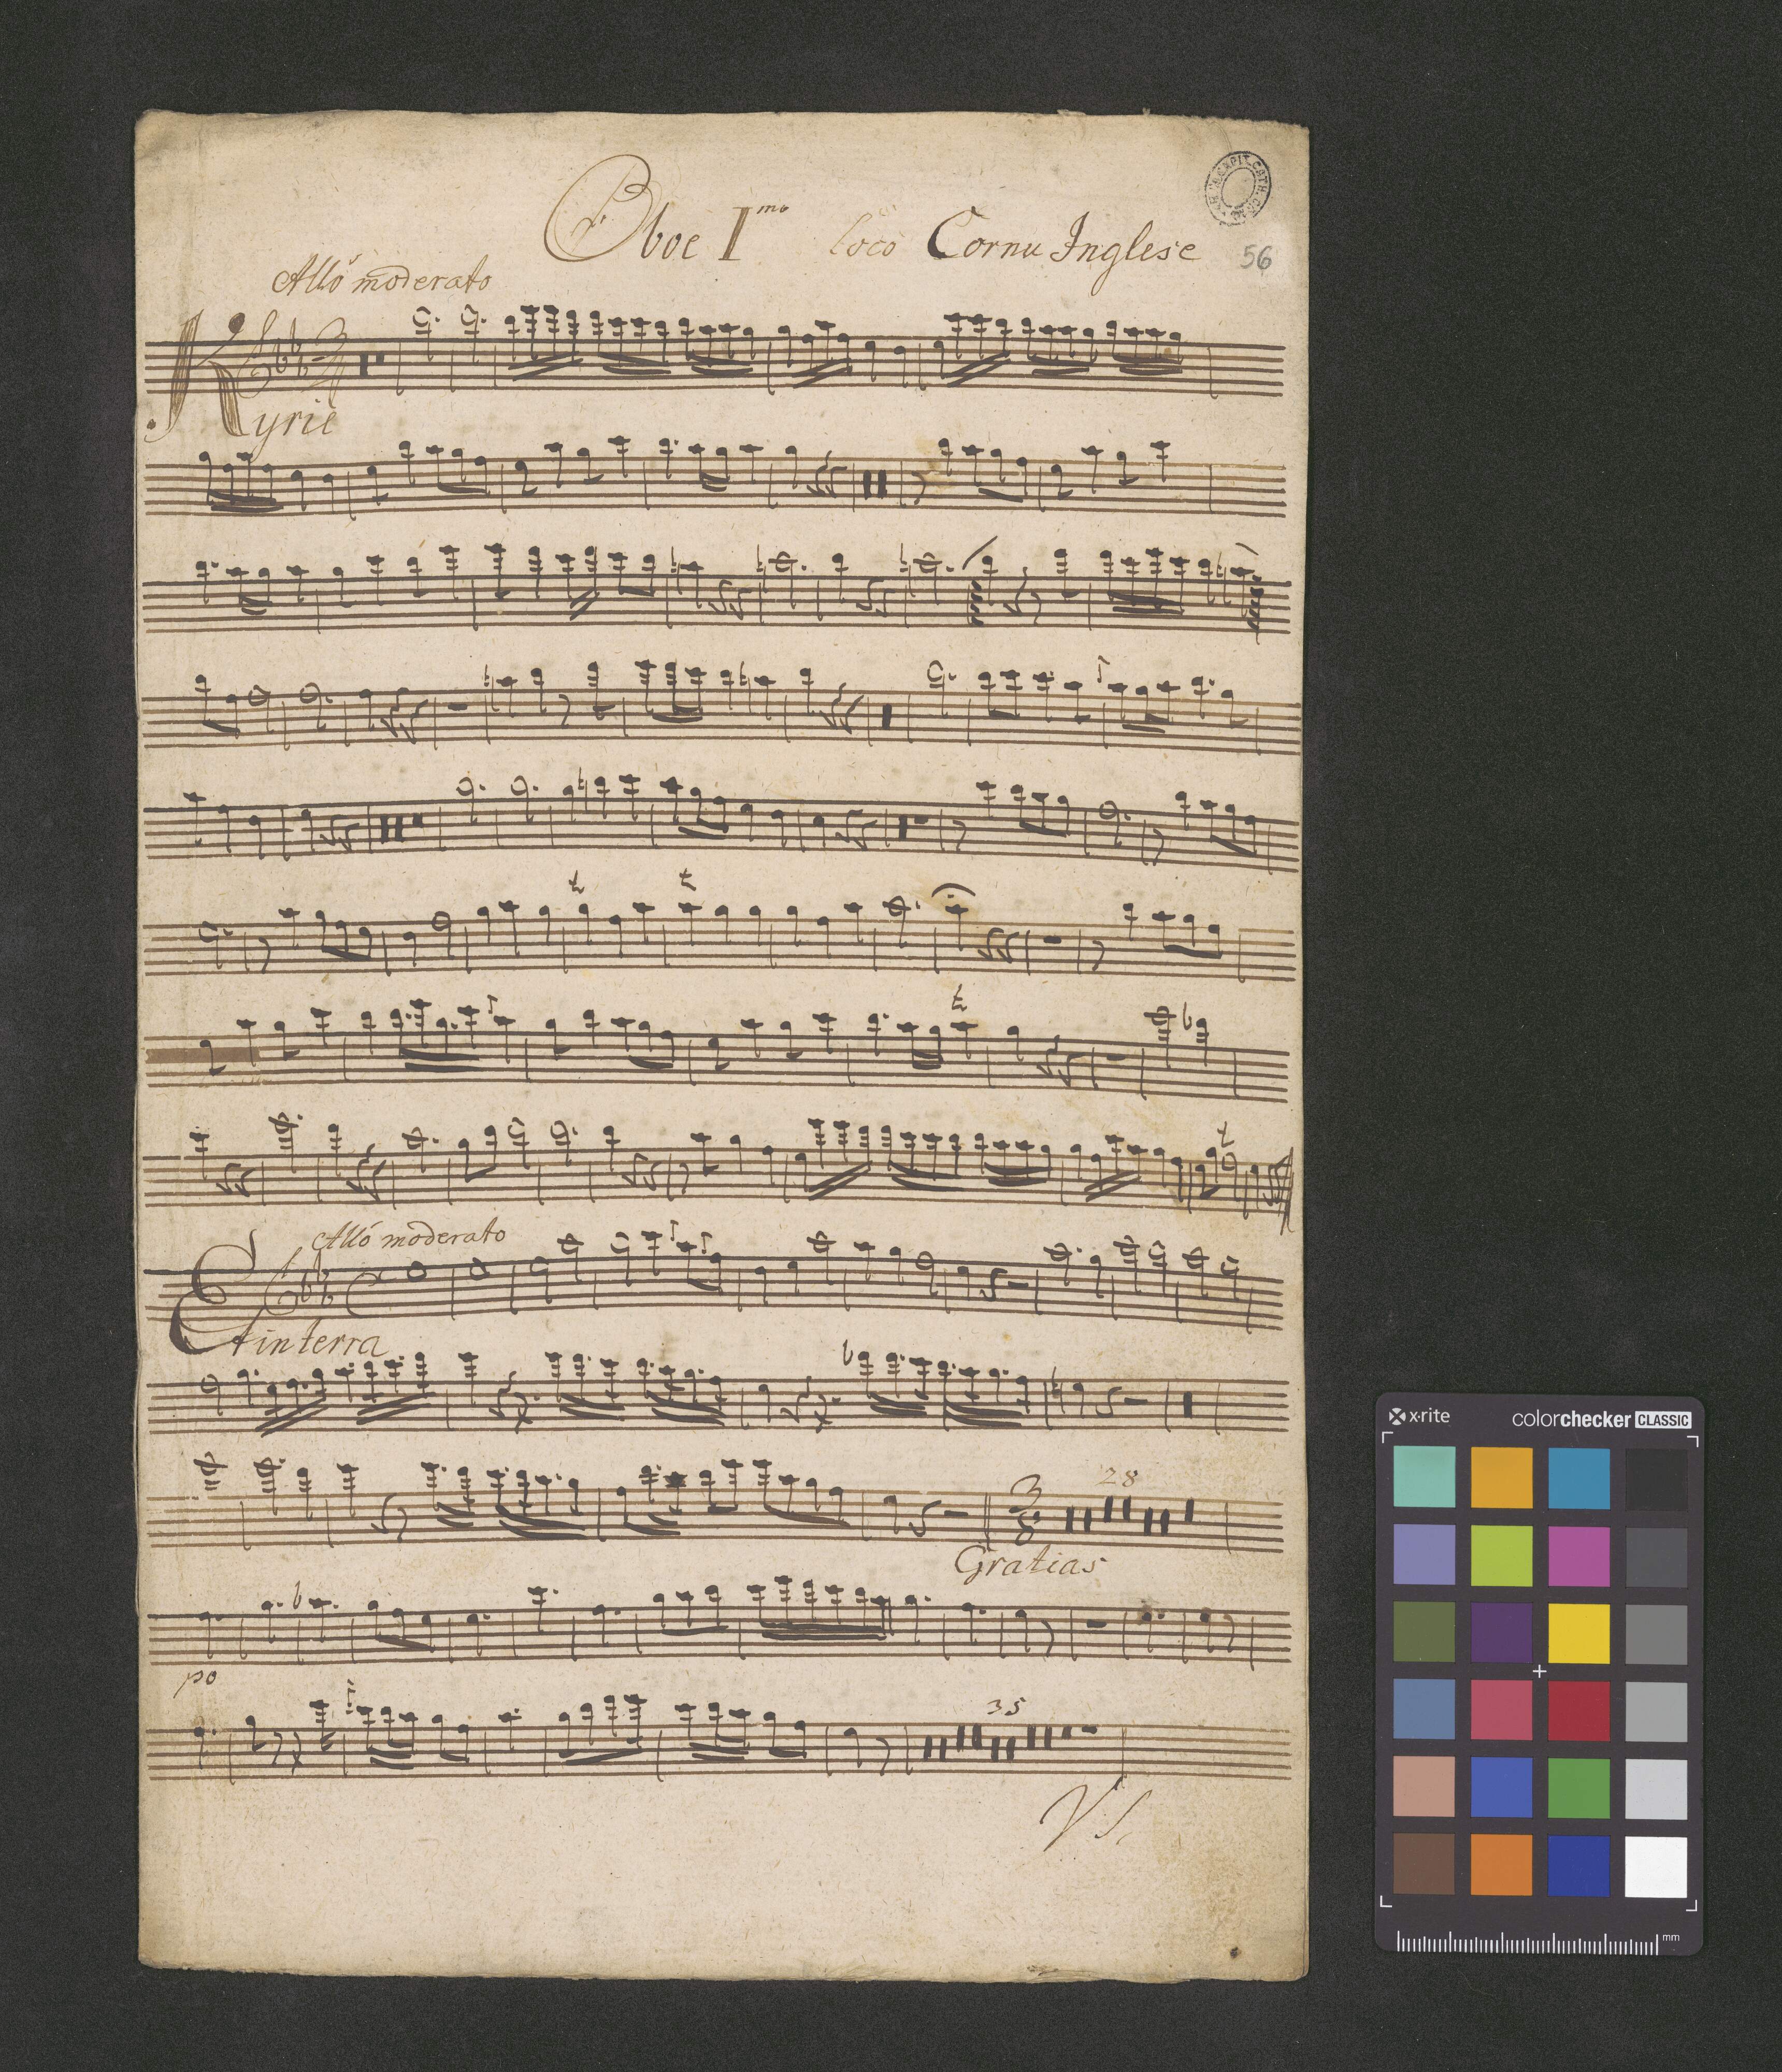 Oboe I mo loco Cornu Inglese
56
Allo moderato
Kyrie
Allo moderato
Et in terra
28
Gratias
po
35
VS.
x·rite
colorchecker CLASSIC
mm